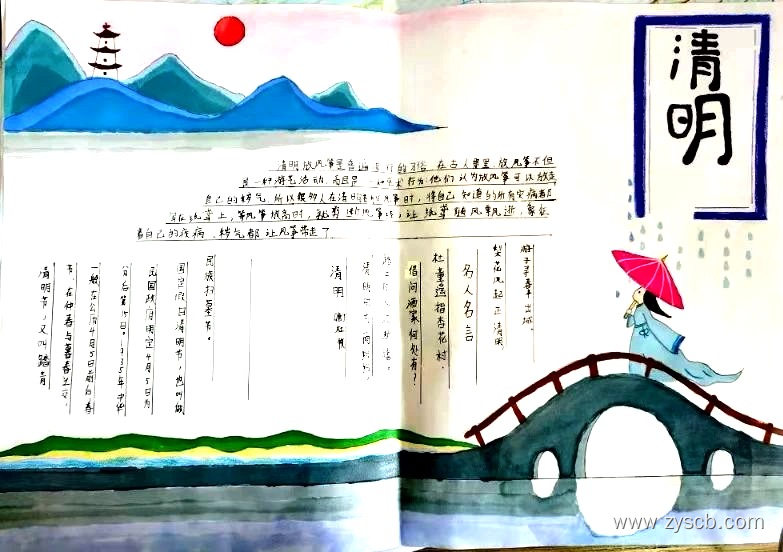 清明
清明放风筝是普遍流行的习俗.在古人那里,放风筝不但
是一种游艺活动,而且是一种巫术行为:他们认为放风筝可以放走
自己的秽气.所以很多人在清明节放风筝时,将自己知道的所有灾病都
写在纸鸢上,等风筝放高时,就剪断风筝线,让纸鸢随风飘逝,象征
着自己的疾病、秽气都让风筝带走了.
游子寻春半出城.
梨花风起正清明
名人名言
牧童遥指杏花村.
借问酒家何处有?
清明
民族扫墓节。
国定假日清明节,也叫做
民国政府明定4月5日为
15日。1935年中华
一般在公历4月5日前后春
节,在仲春与暮春之交.
清明节,又叫踏青
www.zyscb.com